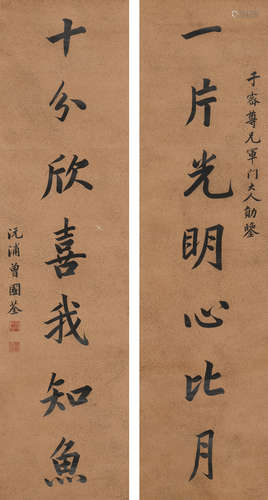 一片光明心比月
子密尊兄軍门大人勛鑒
十分欣喜我知魚
沅浦曾國荃